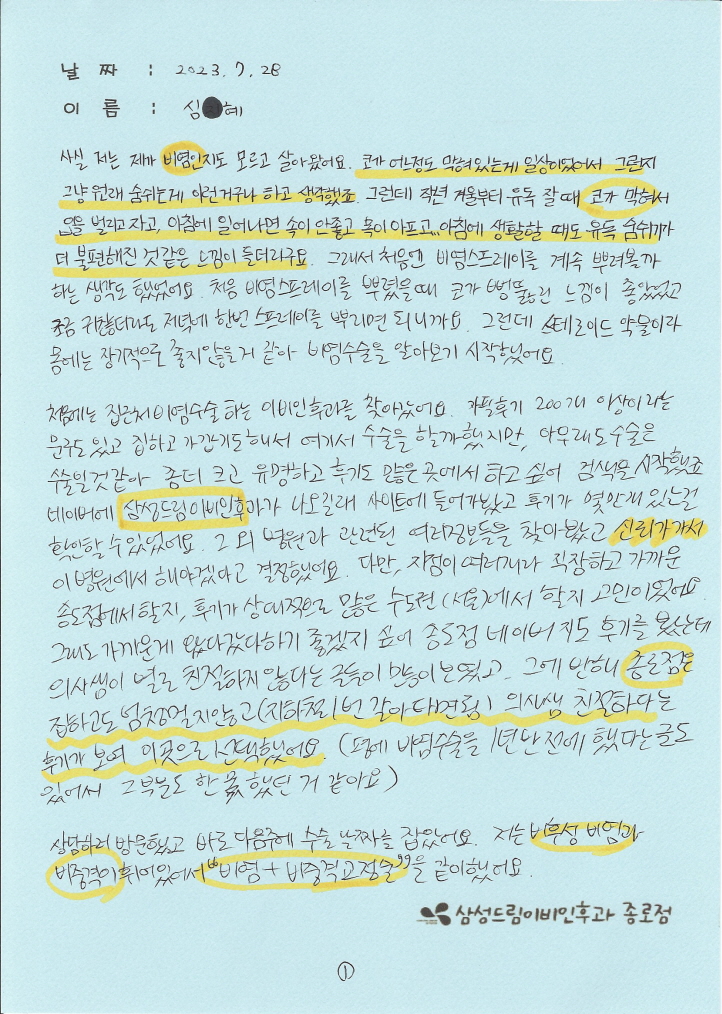 날 짜 : 2023. 7. 28
이 름 : 심 혜
사실 저는 제가 비염인지도 모르고 살아왔어요. 코가 어느정도 막혀있는게 일상이었어서 그런지
그냥 원래 숨쉬는게 이런거구나 하고 생각했죠. 그런데 작년 겨울부터 유독 잘때 코가 막혀서
입을 벌리고 자고, 아침에 일어나면 속이 안좋고 목이 아프고.. 아침에 생활할 때도 유독 숨쉬기가
더 불편해진 것같은 느낌이 들더라구요. 그래서 처음엔 비염스프레이를 계속 뿌려볼까
하는 생각도 했었어요. 처음 비염스프레이를 뿌렸을때 코가 뻥뚫린 느낌이 좋았었고
조금 귀찮더라도 저녁에 한번 스프레이를 뿌리면 되니까요. 그런데 스테로이드 약물이라
몸에는 장기적으로 좋지않을거 같아 비염수술을 알아보기 시작했어요.
처음에는 집근처 비염수술 하는 이비인후과를 찾아갔어요. 카톡후기 200개 이상이라는
문구도 있고 집하고 가깝기도해서 여기서 수술을 할까했지만, 아무래도 수술은
수술일것같아 좀더 크고 유명하고 후기도 많은 곳에서 하고 싶어 검색을 시작했죠
네이버에 삼성드림이비인후과가 나오길래 사이트에 들어가봤고 후기가 몇만개 있는걸
확인할 수 있었어요. 그 외 병원과 관련된 여러정보들을 찾아봤고 신뢰가가서
이 병원에서 해야겠다고 결정했어요. 다만, 지점이 여러개라 직장하고 가까운
송도점에서 할지, 후기가 상대적으로 많은 수도권(서울)에서 할지 고민이었어요
그래도 가까운게 왔다갔다하기 좋겠지 싶어 송도점 네이버 지도 후기를 봤는데
의사쌤이 별로 친절하지 않다는 글들이 많이 보였고, 그에 반해 종로점은
집하고도 엄청멀지않고(지하철 1번 갈아타면됨) 의사쌤 친절하다는
후기가 보여 이곳으로 선택했어요. ( 비염수술을 1년 전에 했다는 글도
있어서 그부분도 한 몫 했던 거 같아요)
상담하러 방문했고 바로 다음주에 수술 날짜를 잡았어요. 저는 비후성 비염과
비중격이 휘어있어서 "비염 + 비중격교정술"을 같이했어요.
삼성드림이비인후과 종로점
①